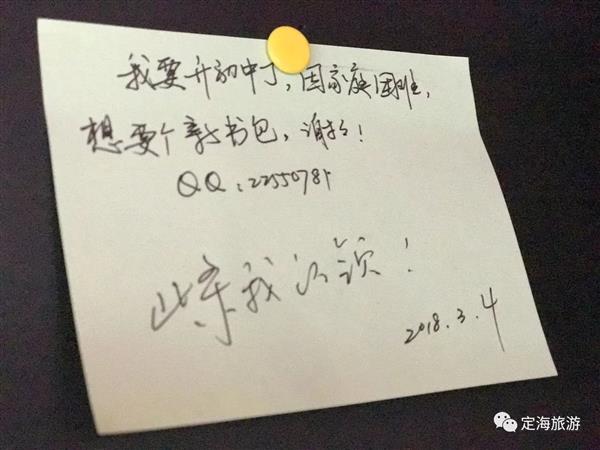 我要升初中了，因家庭困难，
想要个新书包，谢谢！
QQ：22550781
此条我认领！
2018.3.4
定海旅游